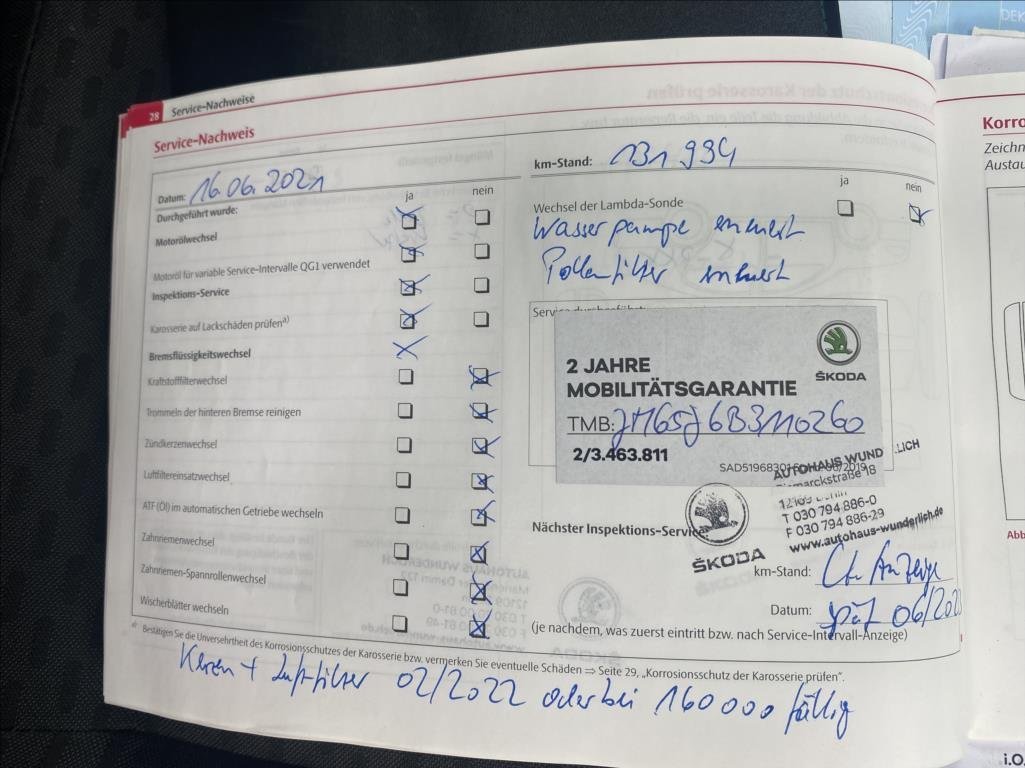 DEK
28 Service-Nachweise
Service-Nachweis
Datum: 16.06.2021
ja
nein
Durchgeführt wurde:
Motorölwechsel
Motoröl für variable Service-Intervalle QG1 verwendet
Inspektions-Service
Karosserie auf Lackschäden prüfen a)
Bremsflüssigkeitswechsel
Kraftstofffilterwechsel
Trommeln der hinteren Bremse reinigen
Zündkerzenwechsel
Luftfiltereinsatzwechsel
ATF (Öl) im automatischen Getriebe wechseln
Zahnriemenwechsel
Zahnriemen-Spannrollenwechsel
Wischerblätter wechseln
km-Stand: 131 994
ja
nein
Wechsel der Lambda-Sonde
Wasserpumpe erneuert
Pollenfilter erneuert
2 JAHRE
MOBILITÄTSGARANTIE
ŠKODA
TMB:
2/3.463.811
AUTOHAUS WUNDERLICH
Bismarckstraße 18
T 030 794 886-0
F 030 794 886-29
www.autohaus-wunderlich.de
ŠKODA
Nächster Inspektions-Service:
km-Stand: Anzeige
Datum: spät 06/202
(je nachdem, was zuerst eintritt bzw. nach Service-Intervall-Anzeige)
a) Bestätigen Sie die Unversehrtheit des Korrosionsschutzes der Karosserie bzw. vermerken Sie eventuelle Schäden ⇒ Seite 29, „Korrosionsschutz der Karosserie prüfen“.
Kerzen + Luftfilter 02/2022 oder bei 160000 fällig
Korro
Zeichn
Austau
Abb
i.O.